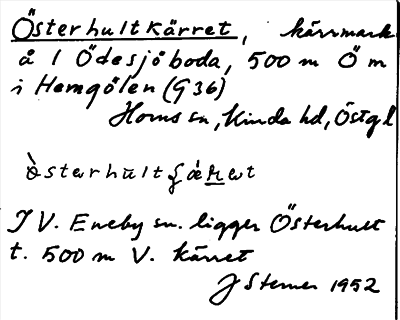 Österhultkärret, kärrmark
å 1 Ödesjöboda, 500 m Ö m
i Hemgölen (G36)
Horns sn, Kinda hd, Östgl
I V. Eneby sn. ligger Österhult
t. 500 m V. kärret
J Sterner 1952